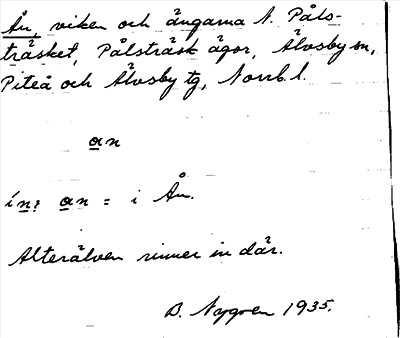 Ån, viken och ängarna N. Påls-
träsket, Pålsträsk ägor, Älvsby sn,
Piteå och Älvsby tg, Norrb. l.
an
in: an = i Ån.
Alterälven rinner in där.
B. Nygren 1935.